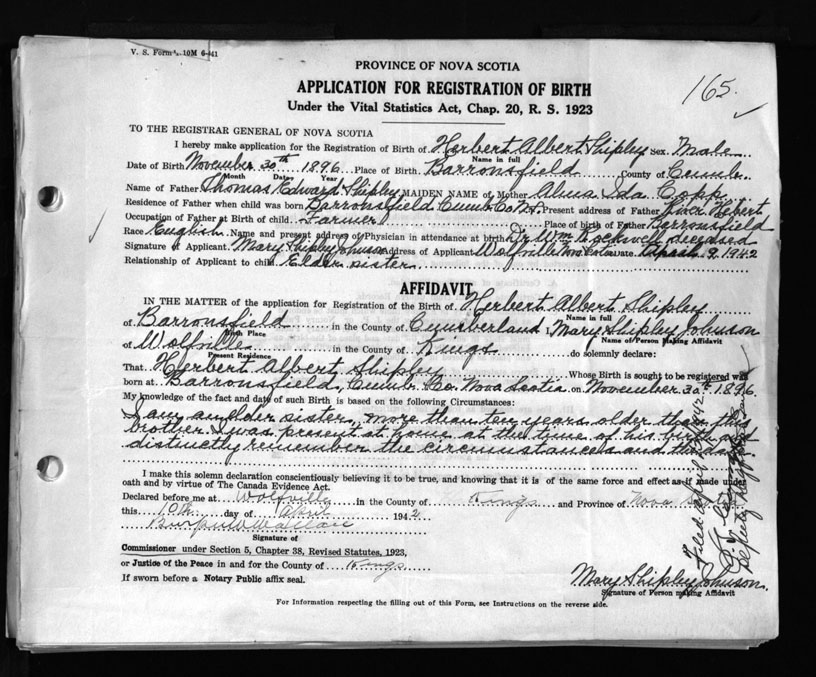 V. S. Form 10M 6-41
PROVINCE OF NOVA SCOTIA
APPLICATION FOR REGISTRATION OF BIRTH
165.
Under the Vital Statistics Act, Chap. 20, R. S. 1923
TO THE REGISTRAR GENERAL OF NOVA SCOTIA
I hereby make application for the Registration of Birth of Herbert Albert Shipley Sex Male
Name in full
Date of Birth November 30th 1896 Place of Birth Barronsfield County of Cumb.
Month Date Year
Name of Father Thomas Edward Shipley MAIDEN NAME of Mother Alma Ida Copp
Residence of Father when child was born Barronsfield Cumb. Co. N.S. Present address of Father River Hebert
Occupation of Father at Birth of child Farmer Place of birth of Father Barronsfield
Race English Name and present address of Physician in attendance at birth Dr. Wm Rockwell deceased
Signature of Applicant Mary Shipley Johnson Address of Applicant Wolfville Date April 9 1942
Relationship of Applicant to child Elder sister
AFFIDAVIT
IN THE MATTER of the application for Registration of the Birth of Herbert Albert Shipley
Name in full
of Barronsfield in the County of Cumberland I, Mary Shipley Johnson
Birth Place Name of Person Making Affidavit
of Wolfville in the County of Kings do solemnly declare:
Present Residence
That Herbert Albert Shipley Whose Birth is sought to be registered was
born at Barronsfield, Cumb. Co. Nova Scotia on November 30th 1896.
My knowledge of the fact and date of such Birth is based on the following Circumstances:
I am an elder sister, more than ten years older than this
brother. I was present at home at the time of his birth and
distinctly remember the circumstances and the date
I make this solemn declaration conscientiously believing it to be true, and knowing that it is of the same force and effect as if made under
oath and by virtue of The Canada Evidence Act.
Declared before me at Wolfville in the County of Kings and Province of Nova
this 10th day of April 1942
Burpee Wallace
Signature of
Commissioner under Section 5, Chapter 38, Revised Statutes, 1923,
or Justice of the Peace in and for the County of Kings
If sworn before a Notary Public affix seal.
Mary Shipley Johnson.
Signature of Person making Affidavit
For Information respecting the filling out of this Form, see Instructions on the reverse side.
Filed April
Deputy Registrar